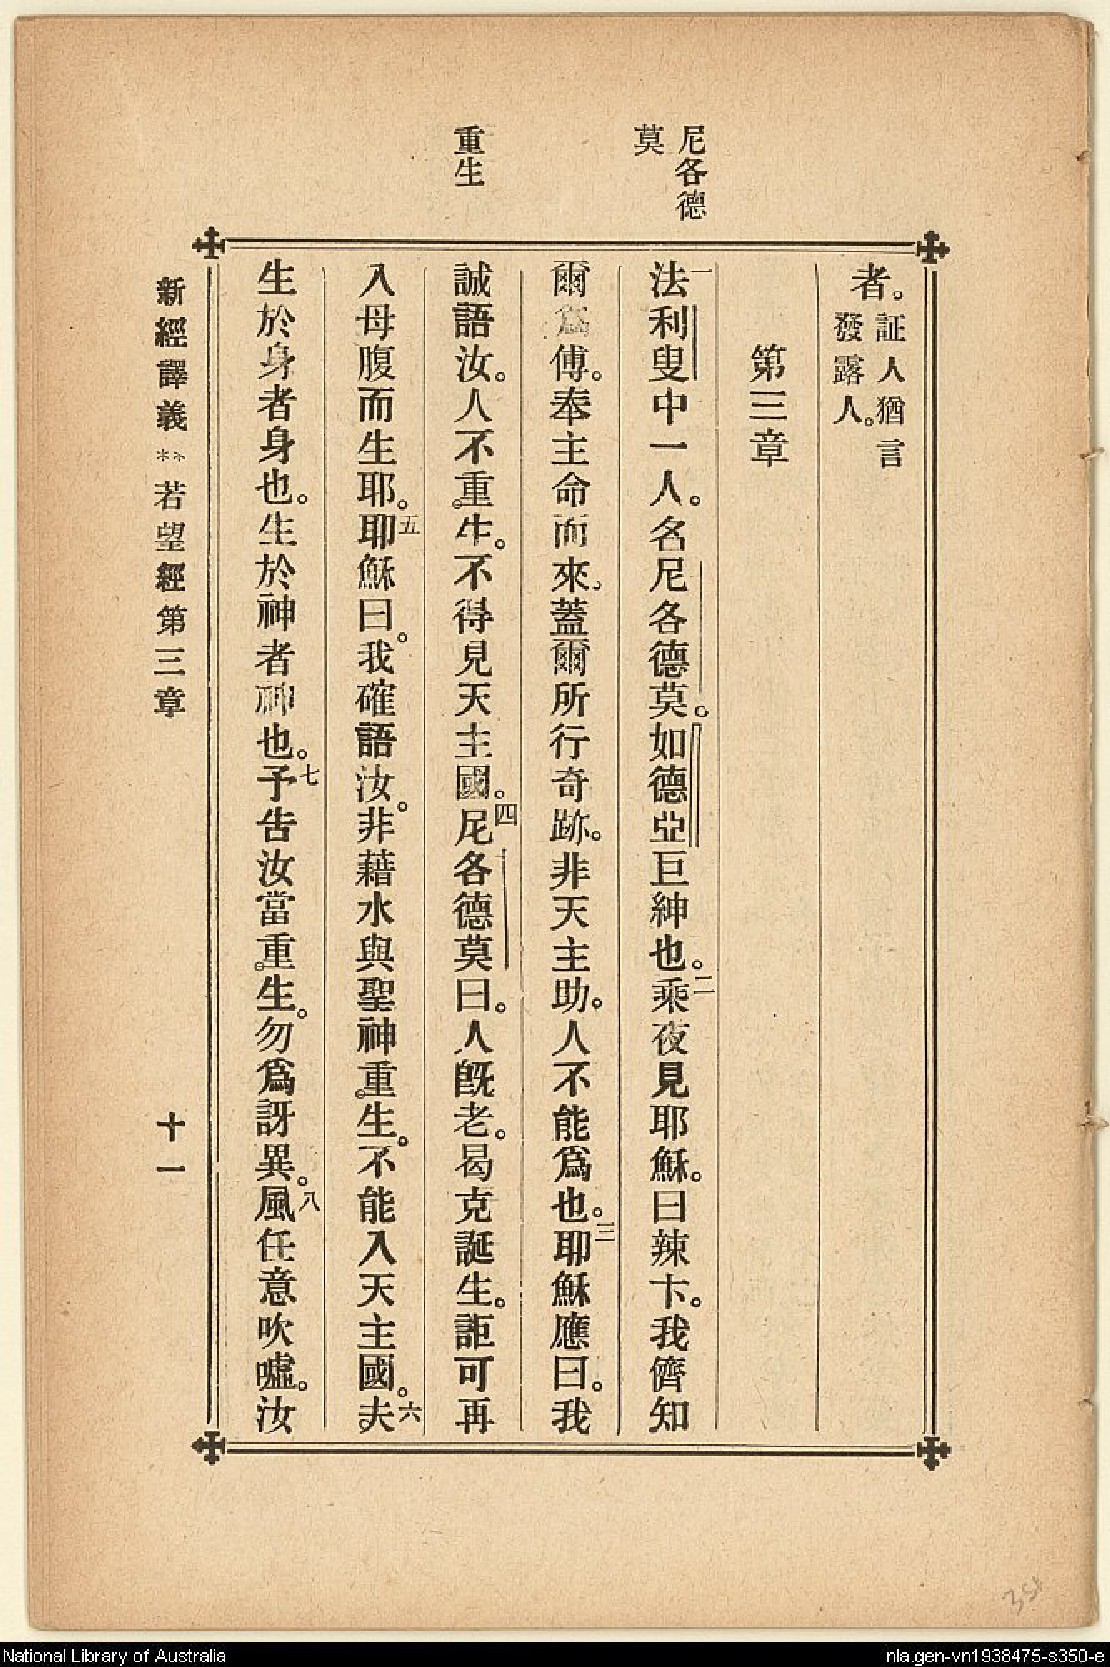 尼各德
莫
重生
者。証人猶言
發露人。
第三章
一法利叟中一人。名尼各德莫。如德亞巨紳也。二乘夜見耶穌。曰辣卞。我儕知
爾爲傅。奉主命而來。蓋爾所行奇跡。非天主助。人不能爲也。三耶穌應曰。我
誠語汝。人不重生。不得見天主國。四尼各德莫曰。人旣老。曷克誕生。詎可再
入母腹而生耶。五耶穌曰。我確語汝。非藉水與聖神重生。不能入天主國。六夫
生於身者身也。生於神者神也。七予告汝當重生。勿爲訝異。八風任意吹噓。汝
新經譯義**若望經第三章 十一
358
National Library of Australia
nla.gen-vn1938475-s350-e